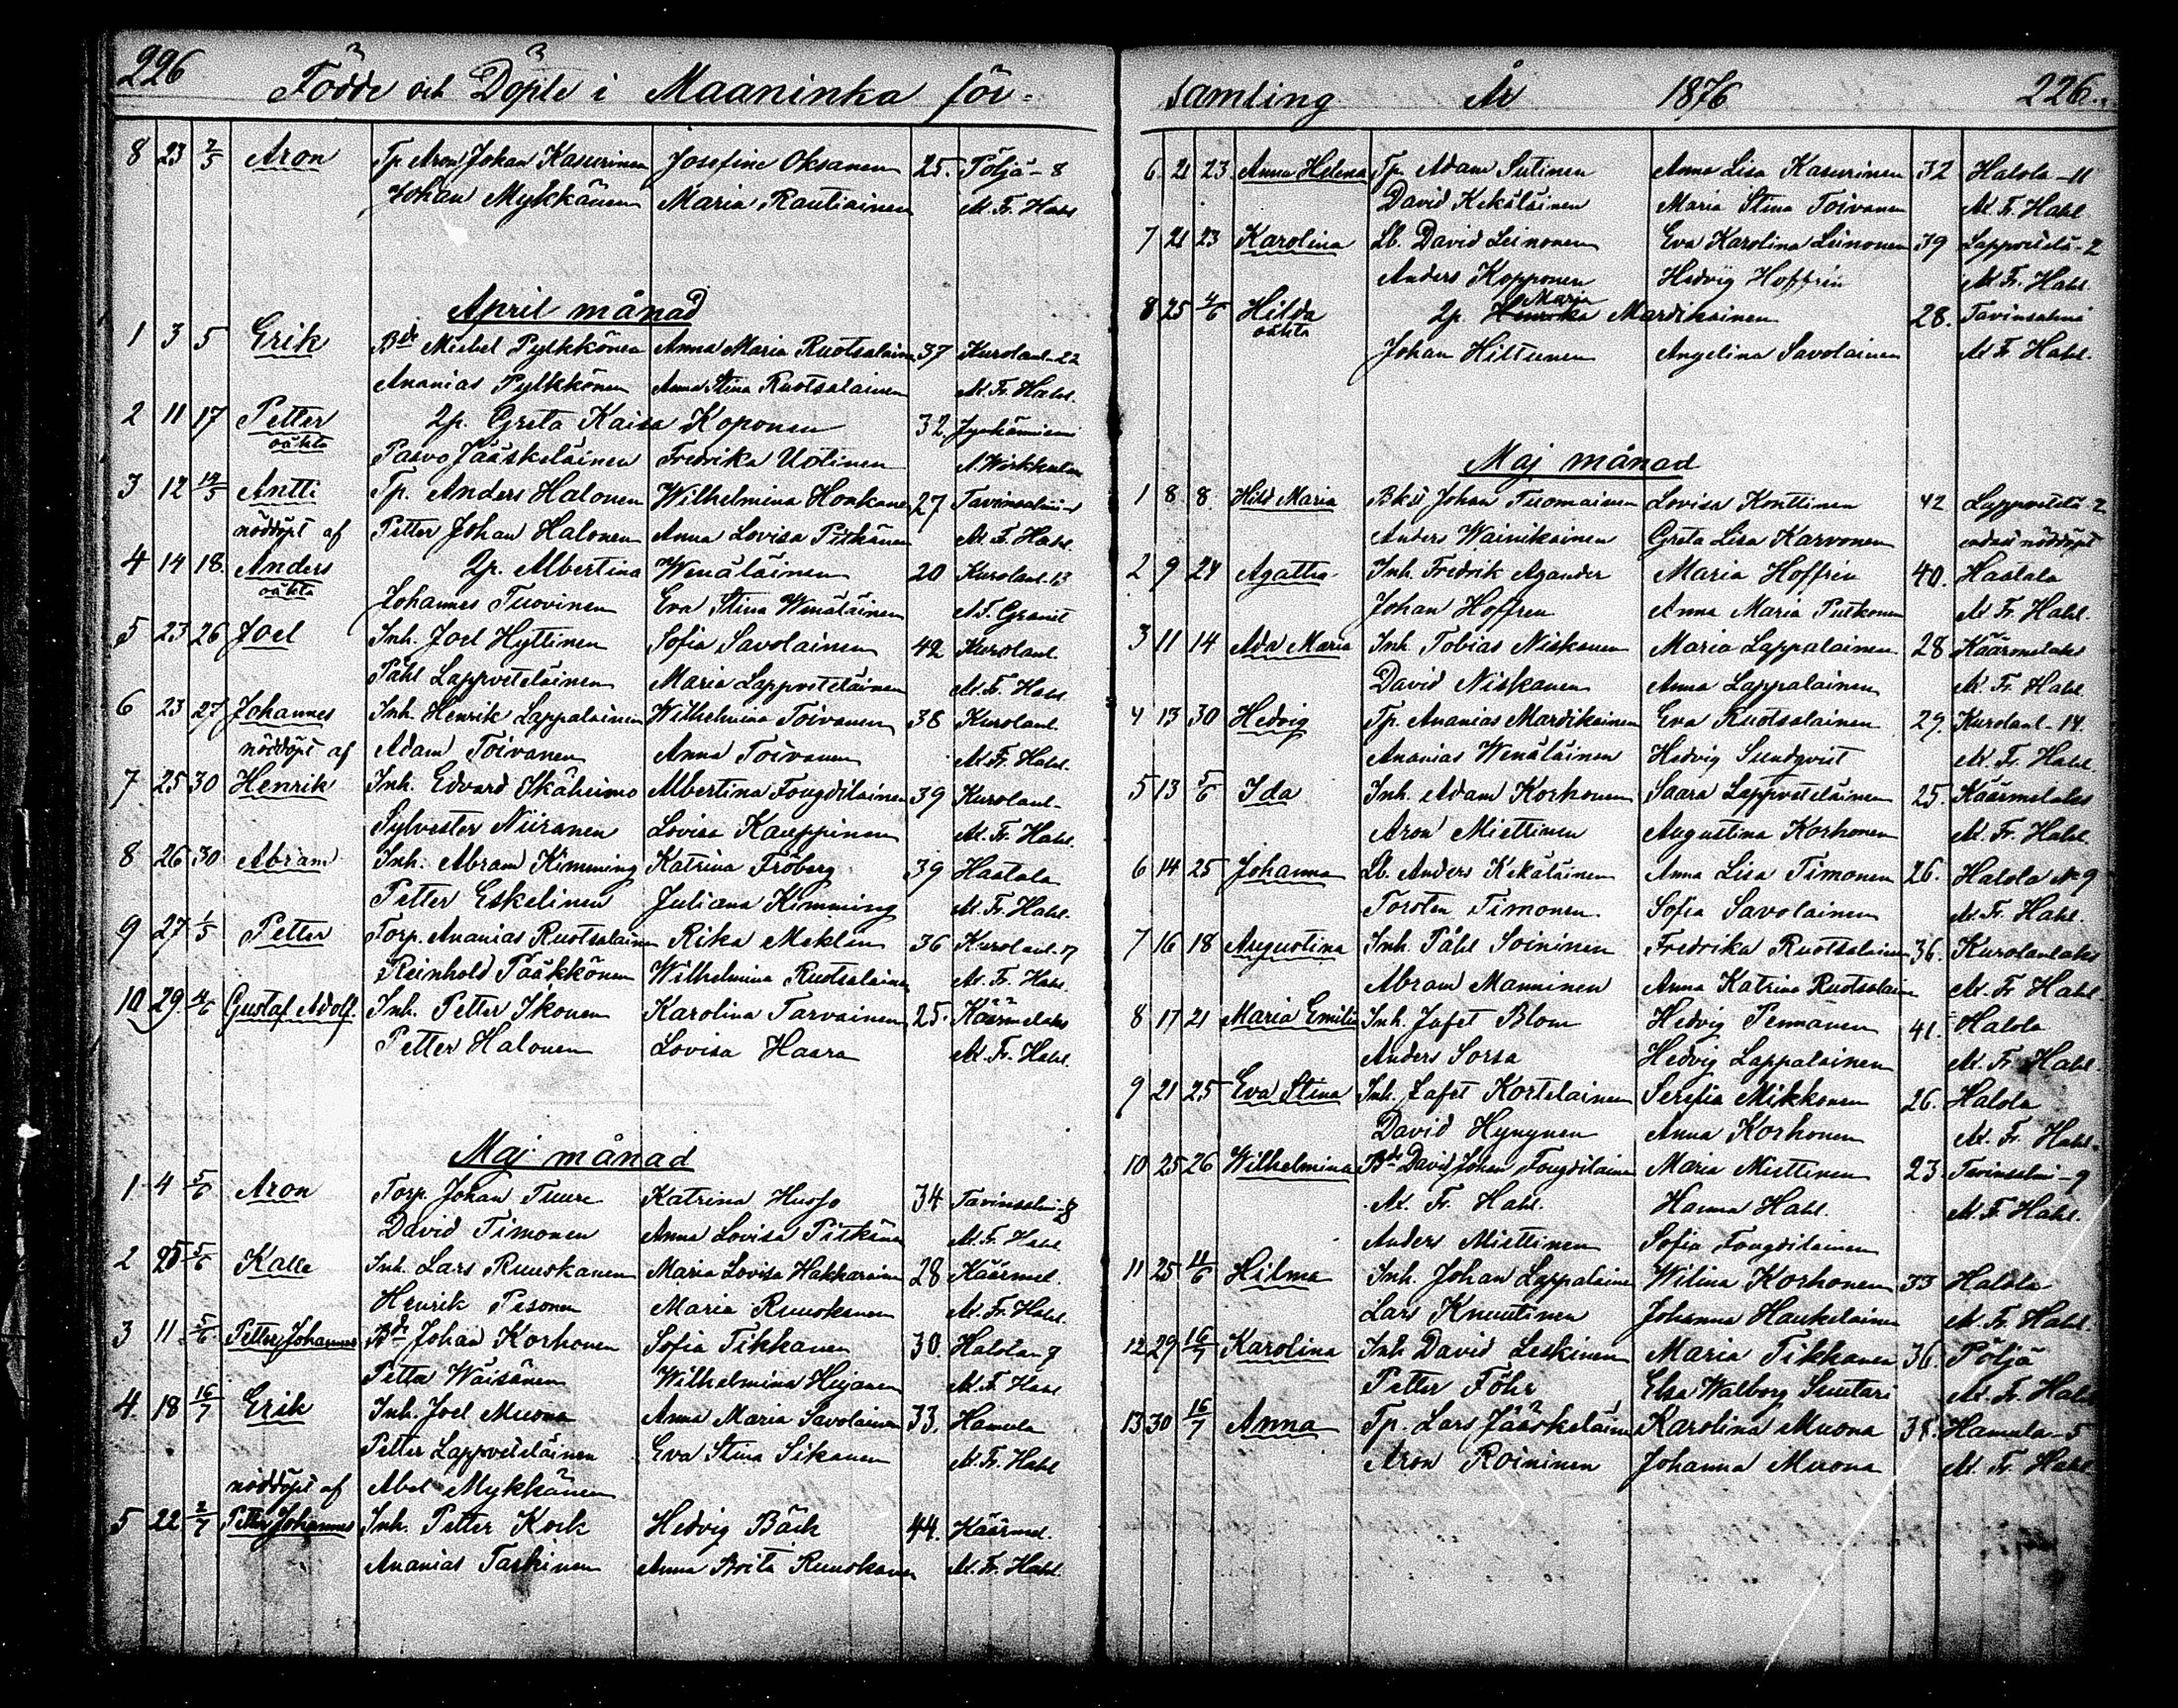 226 Födde och Döpte i Maaninka för=
8 23 2/5 Aron Tp Aron Johan Kasurinen Josefine Oksanen 25. Pöljä-8
Johan Mykkänen Maria Rautiainen A. Fr. Hahl
April månad
1 3 5 Erik Bde Mickel Pylkkönen Anna Maria Ruotsalainen 37 Kurolanl-22
Ananias Pylkkönen Anna Stina Ruotsalainen A. Fr. Hahl.
2 11 17 Petter 2p. Greta Kaisa Koponen 32.
oäkta
Paavo Jääskeläinen Fredrika Uotinen
3 12 14/5 Antti Tp. Anders Halonen Wilhelmina Honkanen 27 Tavinsalmi
nöddöpt af Petter Johan Halonen Anna Lovisa Pitkänen A. Fr. Hahl.
4 14 18. Anders 2p. Albertina Wenäläinen 20 Kurolanl. 13
oäkta
Johannes Tuovinen Eva Stina Wenäläinen A F. Granit
5 23 26 Joel Inh. Joel Hyttinen Sofia Savolainen 42 Kurolanl.
Påhl Lappveteläinen Maria Lappveteläinen A. Fr. Hahl
6 23 27 Johannes Inh. Henrik Lappalainen Wilhelmina Toivanen 38 Kurolanl.
nöddöpt af Adam Toivanen Anna Toivanen A. Fr. Hahl.
7 25 30 Henrik Inh. Edvard Ikäheimo Albertina Fougdilainen 39 Kurolanl-
Sylvester Niiranen Lovisa Kauppinen A. Fr. Hahl.
8 26 30 Abram Inh. Abram Kimming Katrina Fröberg 39 Haatala
Petter Eskelinen Juliana Kimming A. Fr. Hahl.
9 27 1/5 Petter Torp. Ananias Ruotsalainen Rika Meklin 36 Kurolanl. 17
Reinhold Pääkkönen Wilhelmina Ruotsalainen A. Fr. Hahl.
10 29. 4/6 Gustaf Adolf. Inh. Petter Ikonen Karolina Tarvainen 25. Käärmelaks
Petter Halonen Lovisa Haara A. Fr. Hahl.
Maj månad
1 4 5/6 Aron Torp. Johan Tuure Katrina Husso 34 Tavinsalmi-8
David Timonen Anna Lovisa Pitkänen A. Fr. Hahl
2 25 5/6 Kalle Inh. Lars Ruuskanen Maria Lovisa Hakkarainen 28 Käärmel.
Henrik Pesonen Maria Ruuskanen A. Fr. Hahl.
3 11 5/6. Petter Johannes Bde Johan Korhonen Sofia Tikkanen 30. Halola 7
Petter Wäisänen Wilhelmina A. F. Hahl
4. 18 16/7 Erik Inh. Joel Muona Anna Maria Savolainen 33. Hamula
Petter Lappveteläinen Eva Stina Sikanen A. Fr. Hahl
nöddöpt af Abel Mykkänen
5 22 2/7 Petter Johannes Inh. Petter Kock Hedvig Bäck 44. Käärmel.
Ananias Taskinen Anna Brita Ruuskanen A. Fr. Hahl.
samling År 1876 226.
6. 21 23. Anna Helena Tp. Adam Sutinen Anna Lisa Kasurinen 32 Halola-11
David Kekäläinen Maria Stina Toivanen A. Fr. Hahl
7 21 23 Karolina Lb. David Leinonen Eva Karolina Leinonen 39 Lappvetelä-2
Anders Kopponen Hedvig Hoffrén A. Fr. Hahl.
Maria
8 25 4/6 Hilda 2p. Henrika Mardikainen 28. Tavinsalmi
oäkta
Johan Hiltunen Angelina Savolainen A Fr. Hahl.
Maj månad
1 8 8. Hild Maria Johan Tuomainen Lovisa Konttinen 42 Lappvetelä-2
Anders Wainikainen Greta Lisa Karvonen endast nöddöpt
2 9 24 Agatha Inh. Fredrik Agander Maria Hoffrén 40. Haatala
Johan Hoffren Anna Maria Putkonen A. Fr. Hahl.
3 11 14 Ada Maria Inh. Tobias Niskanen Maria Lappalainen 28 Käärmelaks
David Niskanen Anna Lappalainen A. Fr. Hahl
4 13 30 Hedvig Tp. Ananias Mardikainen Eva Ruotsalainen 29. Kurolanl-14.
Ananias Wenäläinen Hedvig Sundqvist A. Fr. Hahl.
5 13 5/6 Ida Inh. Adam Korhonen Saara Lappveteläinen 25. Käärmelaks
Aron Miettinen Augustina Korhonen A. Fr. Hahl.
6 14 25 Johanna Lb. Anders Kekäläinen Anna Lisa Timonen 26. Halola No 9
Torsten Timonen. Sofia Savolainen A. Fr. Hahl.
7 16 18 Augustina Inh. Påhl Soininen Fredrika Ruotsalainen 36. Kurolanlaks
Abram Manninen Anna Katrina Ruotsalainen A. Fr Hahl
8 17 21 Maria Emilia Inh. Jafet Blom Hedvig Pennanen 41. Halola
Anders Sorsa Hedvig Lappalainen A. Fr Hahl.
9 21 25 Eva Stina Inh. Jafet Kortelainen Serefia Mikkonen 26. Halola
David Hynynen Anna Korhonen A. Fr. Hahl.
10 25 26 Wilhelmina Bde David Johan Fougdilainen Maria Miettinen 23. Tavinsalmi-9
A. Fr. Hahl. Hanna Hahl. A. F. Hahl.
Anders Miettinen Sofia Fougdilainen
11 25 11/6 Hilma Inh. Johan Lappalainen Wilina Korhonen 33 Halola
Lars Knuutinen Johanna Haukelainen A. Fr. Hahl.
12 29 16/7 Karolina Inh David Leskinen Maria Tikkanen 36. Pöljä
Petter Föhr Elsa Walborg Suutari A. Fr. Hahl
13 30 16/7 Anna Tp. Lars Jääskeläinen Karolina Muona 38. Hamula-5
Aron Roininen Johanna Muona A. Fr. Hahl